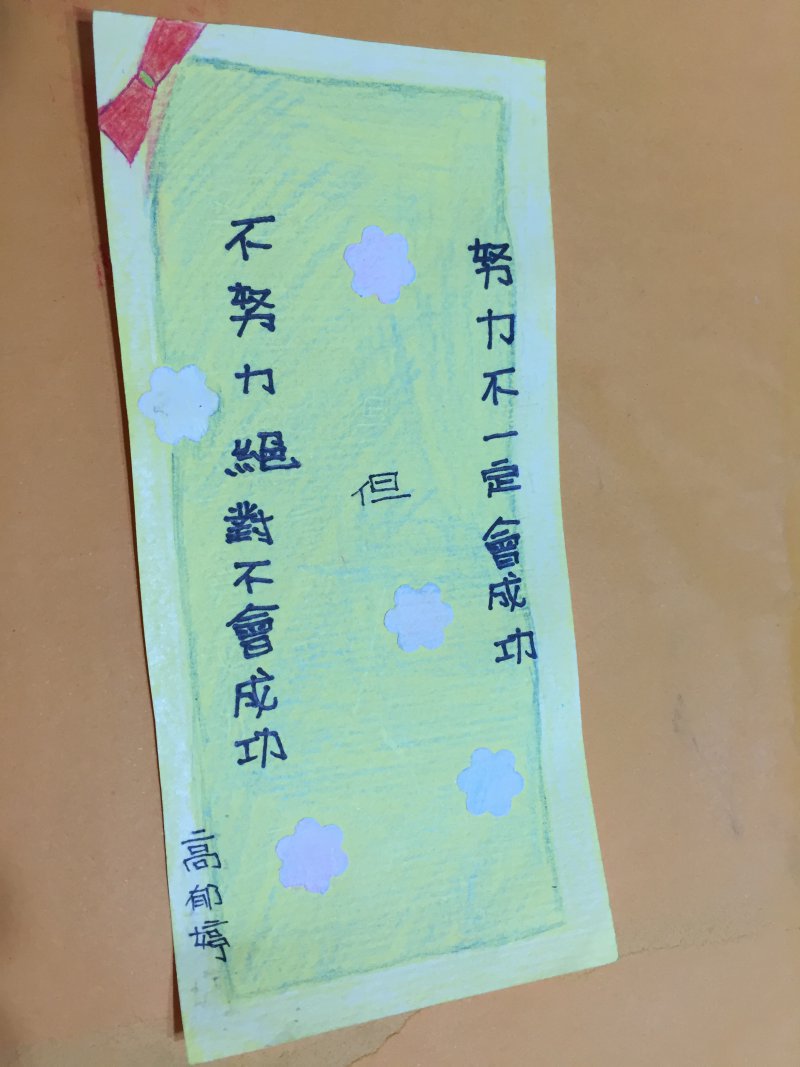 努力不一定會成功
但
不努力絕對不會成功
高郁婷